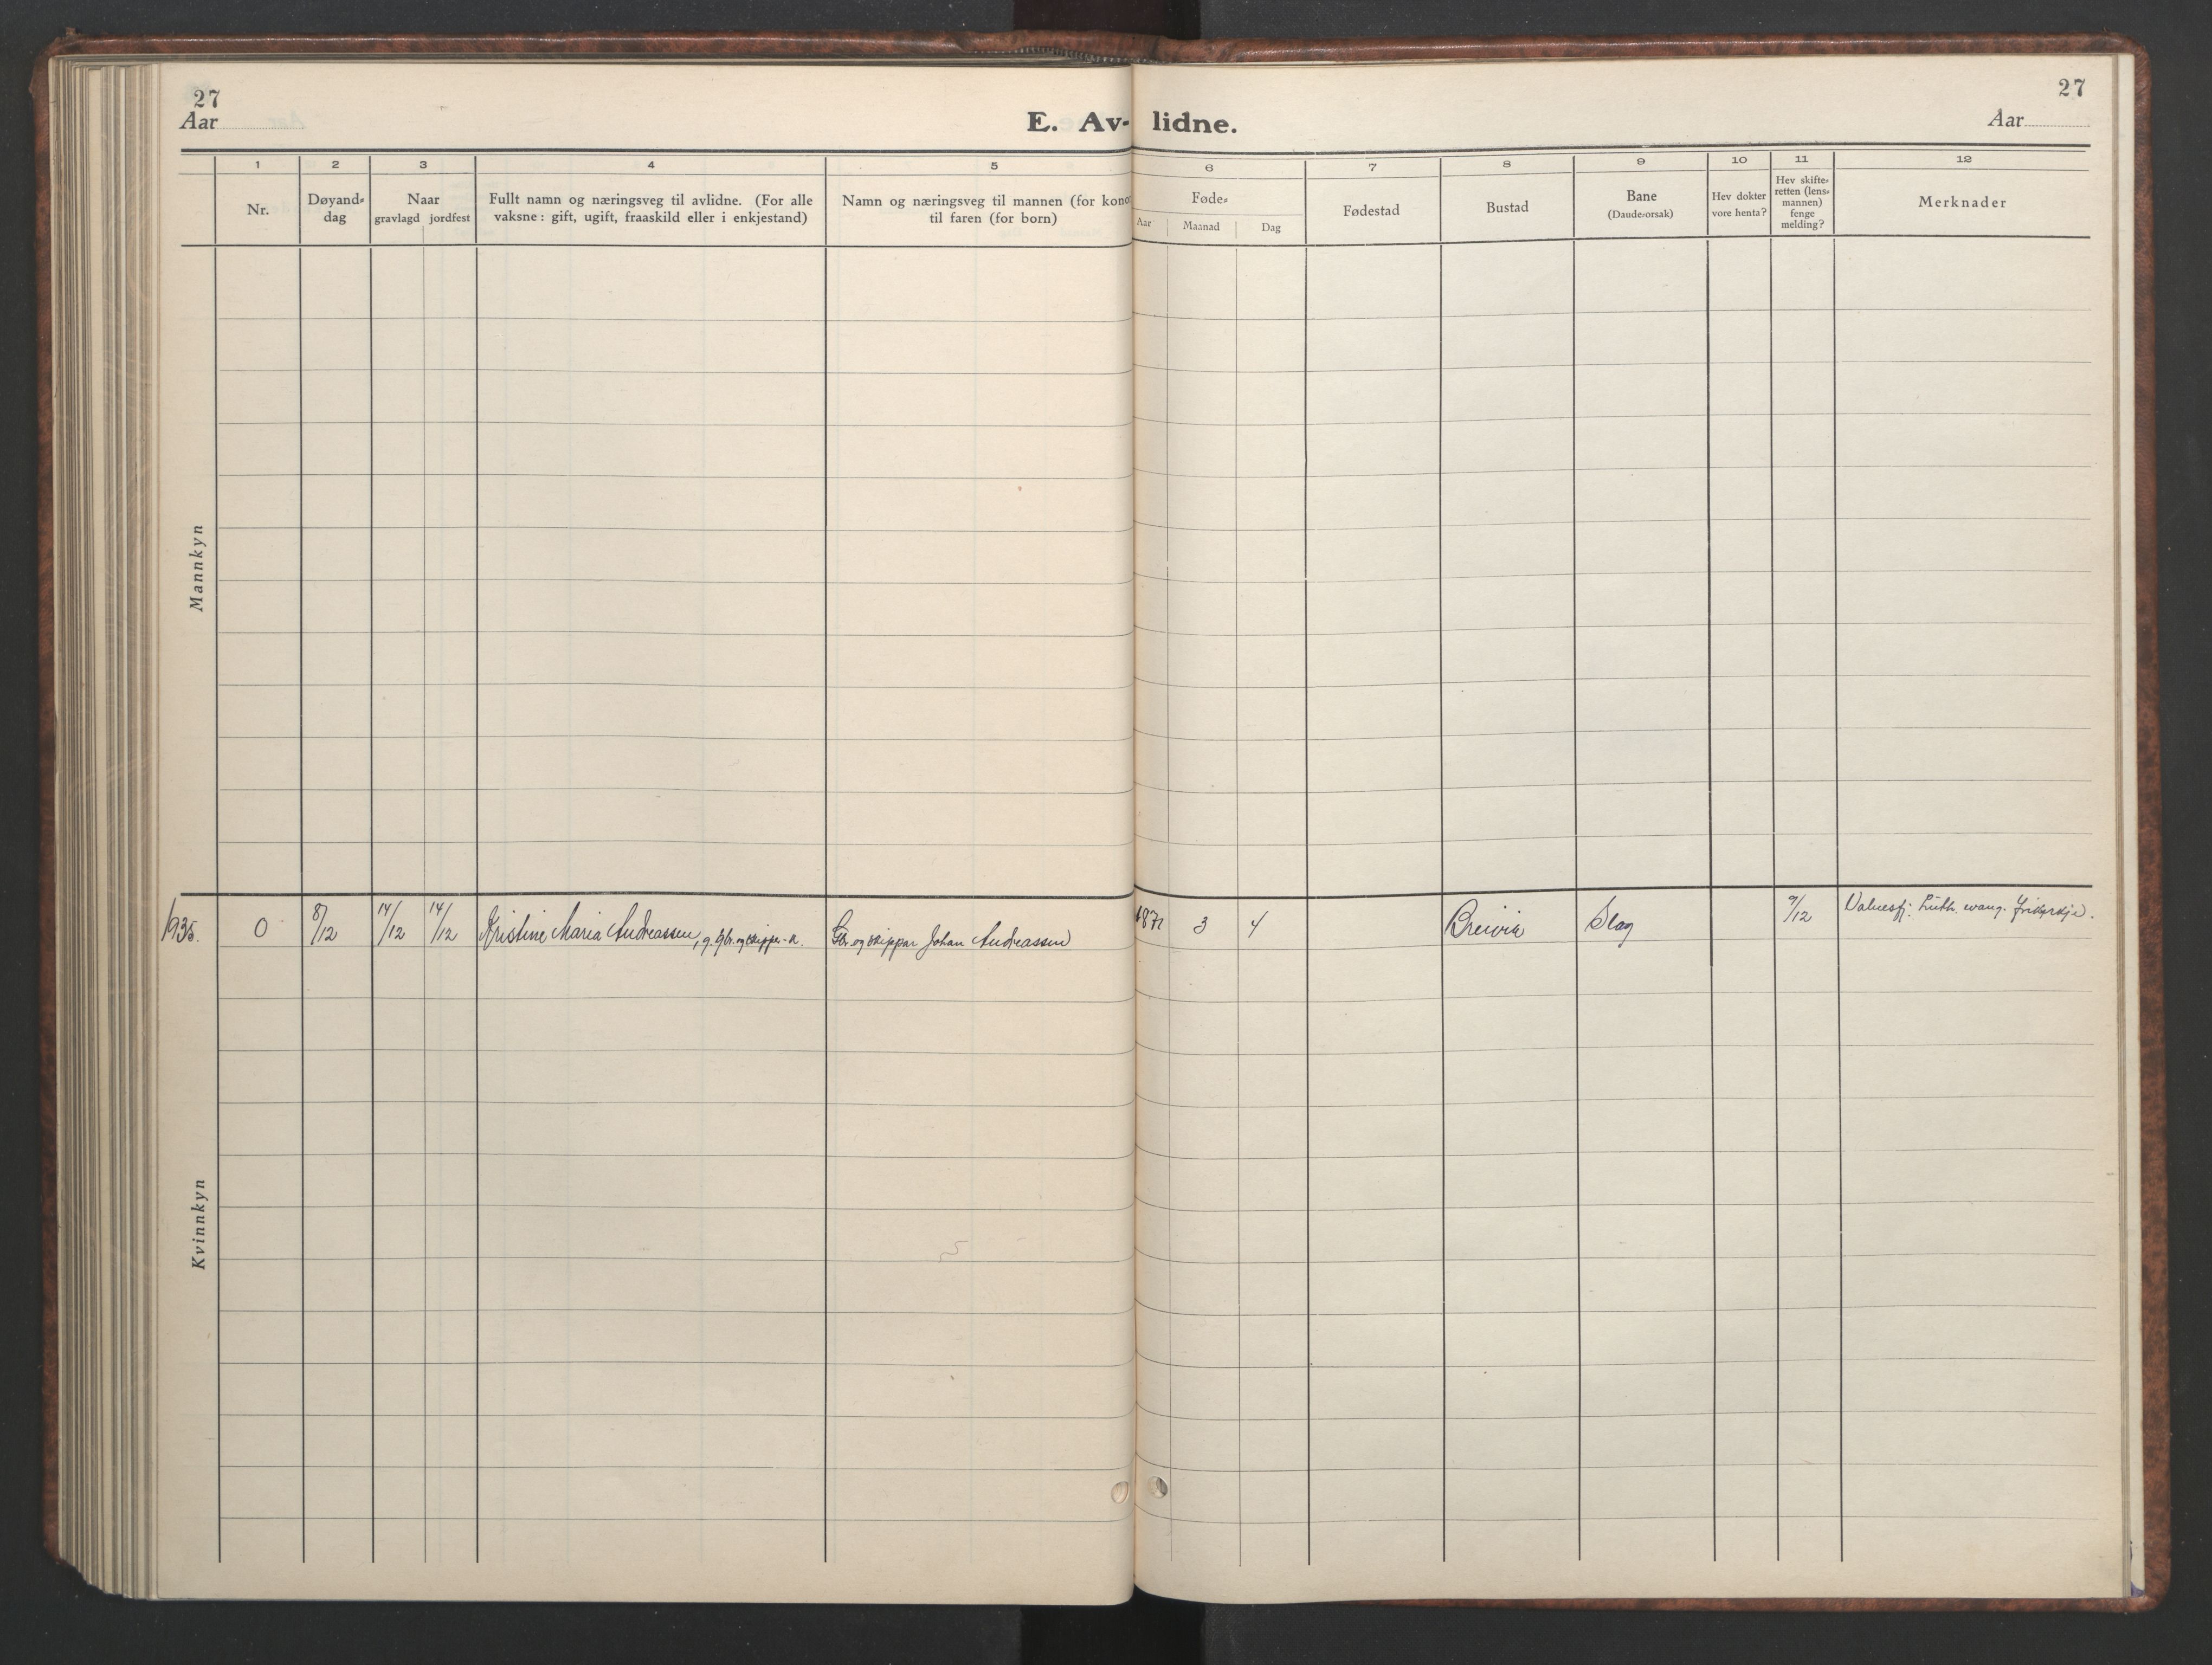 27
Aar
E. Av-lidne.
27
Aar
1 2 3 4 5 6 7 8 9 10 11 12
Nr.
Døyand-
dag
Naar
gravlagd jordfest
Fullt namn og næringsveg til avlidne. (For alle
vaksne: gift, ugift, fraaskild eller i enkjestand)
Namn og næringsveg til mannen (for konor
til faren (for born)
Føde-
Aar Maanad Dag
Fødestad
Bustad
Bane
(Daude-orsak)
Hev dokter
vore henta?
Hev skifte-
retten (lens-
mannen)
fenge
melding?
Merknader
Mannkyn
1935. 0 8/12 14/12 14/12 Kristine Maria Andreassen, g. gbr. og skipper-k. Gbr og skippar Johan Andreassen 3 4 Breivik Slag 9/12 Valnesfj. Luth. evang. frikyrkje.
Kvinnkyn